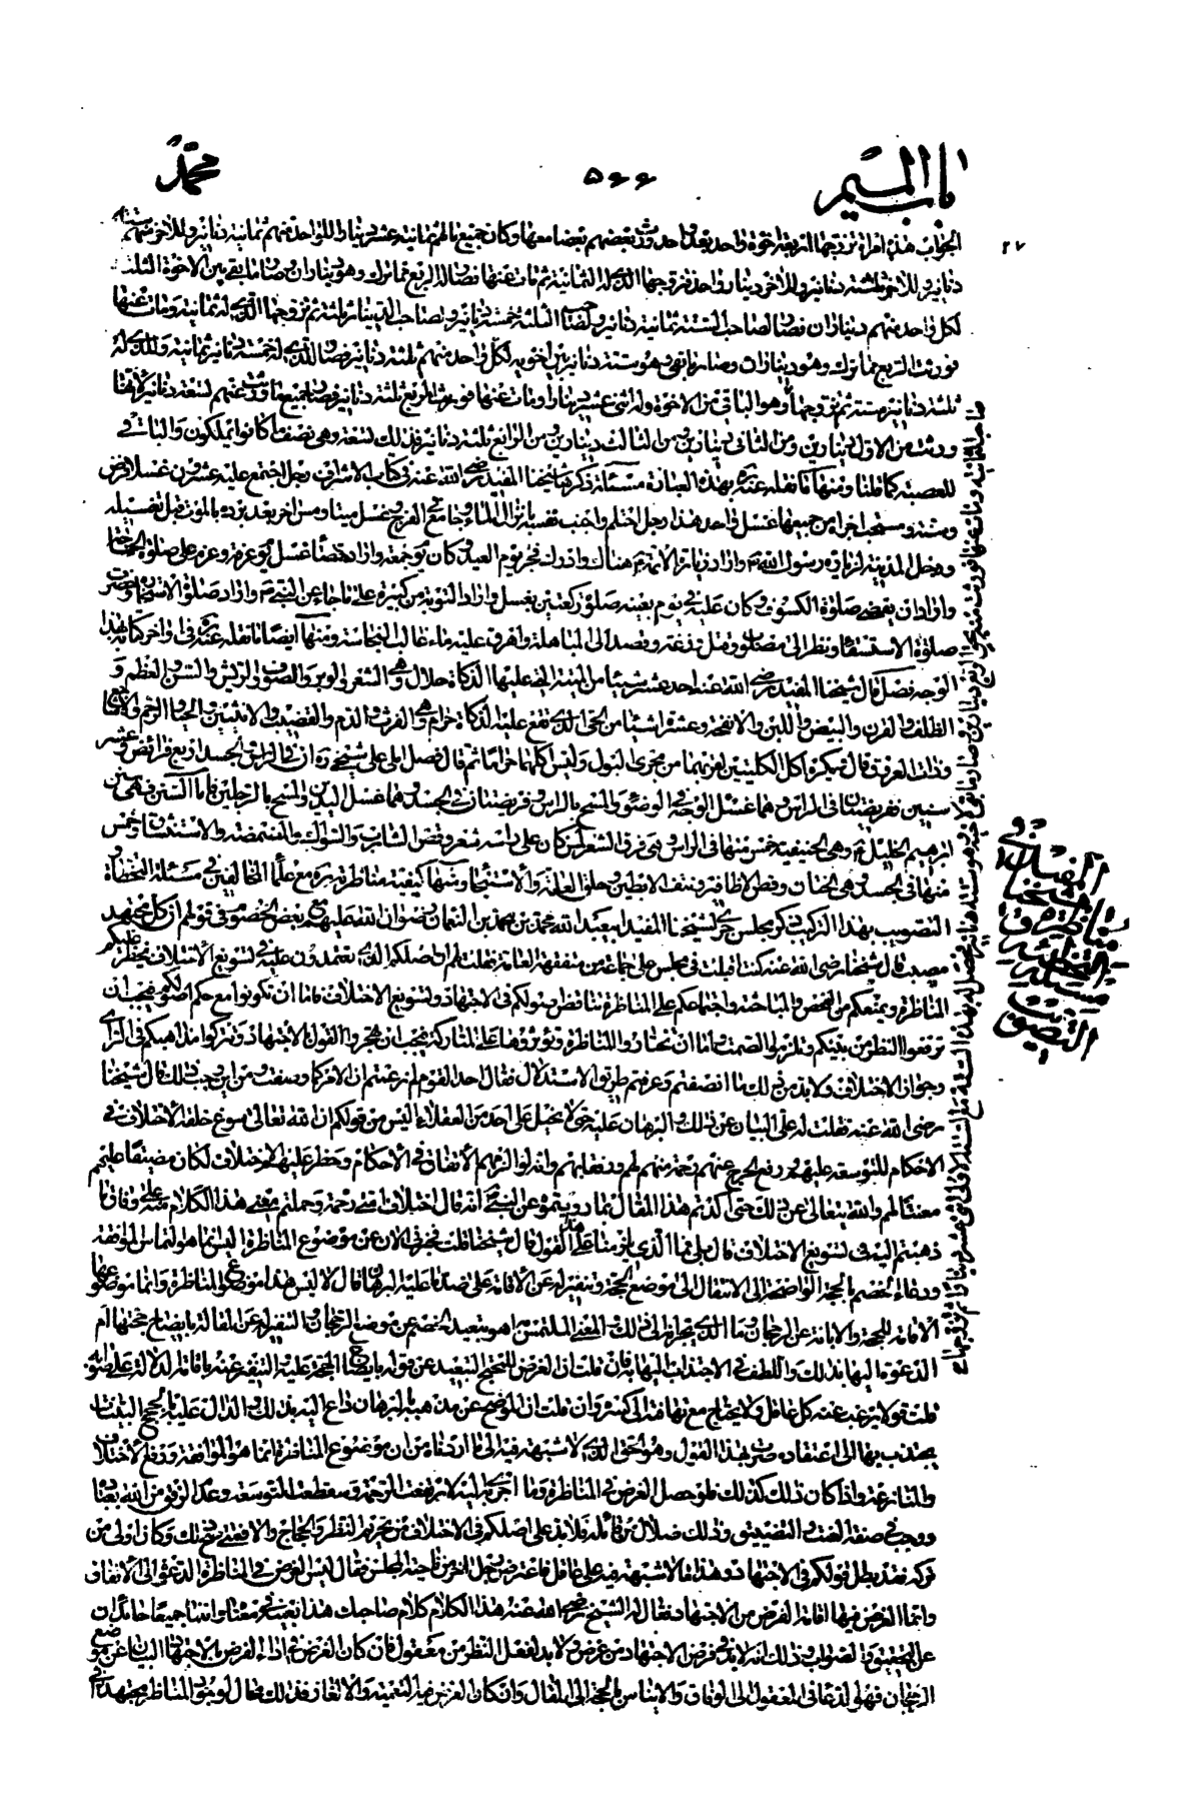 باب الميم
۵۶۶
محمد
۲۷
الجواب هذه امراة تزوجها اربعة اخوة واحد بعد واحد ورث بعضهم بعضا معها وكان جميع مالهم ثمانية عشر دينارا للواحد منهم ثمانية دنانير وللاخر ستة
دنانير وللاخر ثلثة دنانير وللاخر دينار واحد فتزوجها الذي له الثمانية ثم مات عنها فصار لها الربع مما ترك وهو ديناران وصار ما بقي بين الاخوة الثلثة
لكل واحد منهم ديناران فصار لصاحب الستة ثمانية دنانير ولصاحب الثلثة خمسة دنانير ولصاحب الدينار ثلثة ثم تزوجها الذي له ثمانية ومات عنها
فورثت الربع مما ترك وهو ديناران وصار ما بقي وهو ستة دنانير بين اخويه لكل واحد منهم ثلثة دنانير فصار للذي له خمسة دنانير ثمانية وللذي له
ثلثة دنانير ستة ثم تزوجها وهو الباقي من الاخوة وله اثنى عشر دينارا ومات عنها فورثت الربع ثلثة دنانير فصار جميع ما ورثت عنهم تسعة دنانير لانها
ورثت من الاول دينارين ومن الثاني دينارين ومن الثالث دينارين ومن الرابع ثلثة دنانير فذلك تسعة وهي نصف ما كانوا يملكون والباقي
للعصبة كما قلنا ومنها ما نقله عنه بهذه العبارة مسئلة ذكر شيخنا المفيد رضي الله عنه في كتاب الاشراف رجل اجتمع عليه عشرون غسلا فرض
وسنة ومستحب اجزاه من جميعها غسل واحد هذا رجل احتلم واجنب نفسه بانزال الماء وجامع في الفرج وغسل ميتا ومس اخر بعد برده بالموت قبل تغسيله
ودخل المدينة لزيارة رسول الله واراد زيارة الائمة هناك وادرك فجر يوم العيد وكان يوم جمعة واراد قضاء غسل يوم عرفة وعزم على صلوة الحاجة
واراد ان يقضي صلوة الكسوف وكان عليه في يوم بعينه صلوة ركعتين بغسل واراد التوبة من كبيرة على ما جاء عن النبي واراد صلوة الاستخارة وحضرت
صلوة الاستسقاء ونظر الى مصلوب وقتل وزغة وقصد الى المباهلة واهرق عليه ماء غالب النجاسة ومنها ايضا ما نقله عنه في اواخر كتابه بهذا
الوجه فصل قال شيخنا المفيد رضي الله عنه احد عشر شيئا من الميتة التي لم تقع عليها الذكاة حلال وهي الشعر والوبر والصوف والريش والسن والعظم و
الظلف والقرن والبيض واللبن والانفحة وعشرة اشياء من الحي الذي تقع عليه الذكاة حرام وهي الفرث والدم والقضيب والانثيين والحيا والرحم
وذات العروق قال ويكره اكل الكليتين لقربهما من مجرى البول وليس اكلهما حراما ثم قال فصل املى علي شيخي ان في الراس والجسد اربع فرائض وعشر
سنن فريضتان في الراس وهما غسل الوجه في الوضوء والمسح بالراس وفريضتان في الجسد وهما غسل اليدين والمسح بالرجلين فاما السنن فهي سنن
ابرهيم الخليل وهي الحنيفية خمس منها في الراس وهي فرق الشعر لمن كان على راسه شعر وقص الشارب والسواك والمضمضة والاستنشاق وخمس
منها في الجسد وهي الختان وقص الاظافر ونتف الابطين وحلق العانة والاستنجاء ومنها كيفية مناظرته مع علماء المخالفين في مسئلة التخطئة و
التصويب بهذا التركيب ذكر مجلس جرى لشيخنا المفيد ابي عبد الله محمد بن محمد بن النعمان رضوان الله عليه مع بعض الخصوم في قولهم ان كل مجتهد
مصيب قال شيخنا رضي الله عنه كنت اقبلت في مجلس على جماعة من متفقهة العامة فقلت لهم ان اصلكم الذي تعتمدون عليه في تسويغ الاختلاف يحظر عليكم
المناظرة ويمنعكم من الفحص والمباحثة واجتماعكم على المناظرة يناقض اصولكم في الاجتهاد وتسويغ الاختلاف فاما ان تكونوا مع حكم اصولكم فيجب ان
ترفعوا النظر من بينكم وتلزموا الصمت واما ان تختاروا المناظرة وتؤثروها على المتاركة فيجب ان تهجروا القول بالاجتهاد وتتركوا مذاهبكم في الراي
وجواز الاختلاف ولا بد من ذلك ما انصفتم وعرفتم طريق الاستدلال فقال احد القوم لم زعمت ان الامر كما وصفت ومن اين وجب ذلك قال شيخنا
رضي الله عنه فقلت له علي البيان عن ذلك والبرهان عليه حتى لا يحيل على احد من العقلاء اليس من قولكم ان الله تعالى سوغ خلقه الاختلاف في
الاحكام للتوسعة عليهم ورفع الحرج عنهم رحمة منه لهم ورفقا بهم وانه لو الزمهم الاتفاق في الاحكام وحظر عليهم الاختلاف لكان مضيقا عليهم
معنتا لهم والله يتعالى عن ذلك حتى اكدتم هذا المقال بما رويتموه عن النبي انه قال اختلاف امتي رحمة وحملتم معنى هذا الكلام منه على وفاق ما
ذهبتم اليه في تسويغ الاختلاف قال بلى فما الذي يلزمنا على هذا القول قال شيخنا قلت فخبرني الان عن موضوع المناظرة اليس انما هو التماس الموافقة
ودعاء الخصم بالحجة الواضحة الى الانتقال الى موضع الحجة وتنفير له عن الاقامة على ضد ما دل عليه البرهان قال لا ليس هذا موضوع المناظرة وانما موضوعها
لاقامة الحجة والابانة عن الرجحان وما الذي يجر الى ذلك والمعنى الملتمس به اهو تبعيد الخصم عن موضع الرجحان والتنفير له عن المقالة بايضاح حجتها ام
الدعوة اليها بذلك واللطف في الاجتذاب اليها به فان قلت ان الغرض للمحتج التبعيد عن قوله بايضاح الحجة عليه والتنفير عنه باقامة الدلالة على صوابه
قلت قولا يرغب عنه كل عاقل ولا يحتاج معه الى كسره وان قلت ان الموضح عن مذهبه بالبرهان داع اليه بذلك والدال عليه بالحجج البينات
يجتذب بها الى اعتقاده صرت بهذا القول وهو الحق الذي لا شبهة فيه الى ما اردناه من ان موضوع المناظرة انما هو الموافقة ورفع الاختلاف
والمنازعة واذا كان ذلك كذلك فلو حصل الغرض في المناظرة وما اجري به اليه لارتفعت الرحمة وسقطت التوسعة وعدم الرفق من الله بعباده
ووجب في صفة العنت والتضييق وذلك ضلال من قائله فلا بد على اصلكم في الاختلاف من تحريم النظر والحجاج والا فمتى صح ذلك وكان اولى من
تركه فقد بطل قولكم في الاجتهاد وهذا ما لا شبهة فيه على عاقل فاعترض رجل اخر من ناحية المجلس فقال ليس الغرض في المناظرة الدعوة الى الاتفاق
وانما الغرض فيها اقامة الفرض من الاجتهاد فقال له الشيخ رضي الله عنه هذا الكلام كلام صاحبك هذا بعينه في معناه وانتما جميعا حائدان
عن التحقيق والصواب وذلك انه لا بد في فرض الاجتهاد من غرض ولا بد لفعل النظر من معقول فان كان الغرض في اداء الفرض بالاجتهاد البيان عن موضع
الرجحان فهو الدعاء في المعقول الى الوفاق والايناس بالحجة الى المقال وان كان الغرض فيه التعمية والالغاز فذلك محال لوجود المناظر مجتهدا في
المفيد
مناظرة
مسئلة
التصويب